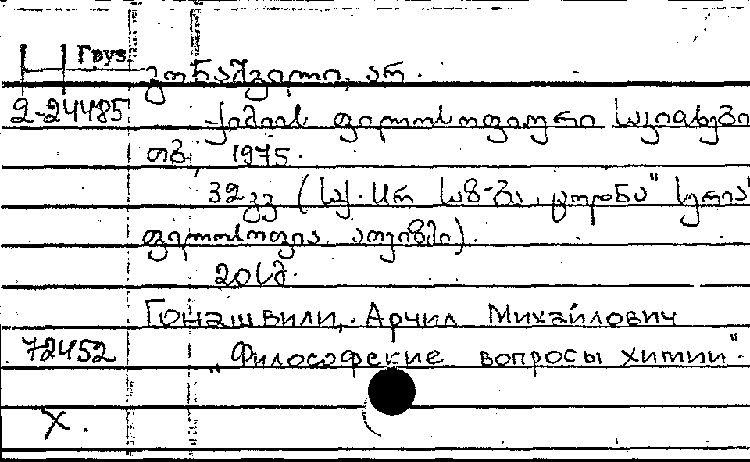 Груз.
გონაშვილი, არ.
2-24485
ქიმიის ფილოსოფიური საკითხები
თბ., 1975.
32 გვ (საქ. სსრ საზ-ბა „ცოდნა“ სერია
ფილოსოფია, ათეიზმი).
20 კპ.
Гонашвили, Арчил Михайлович
72452
„Философские вопросы химии".
X.